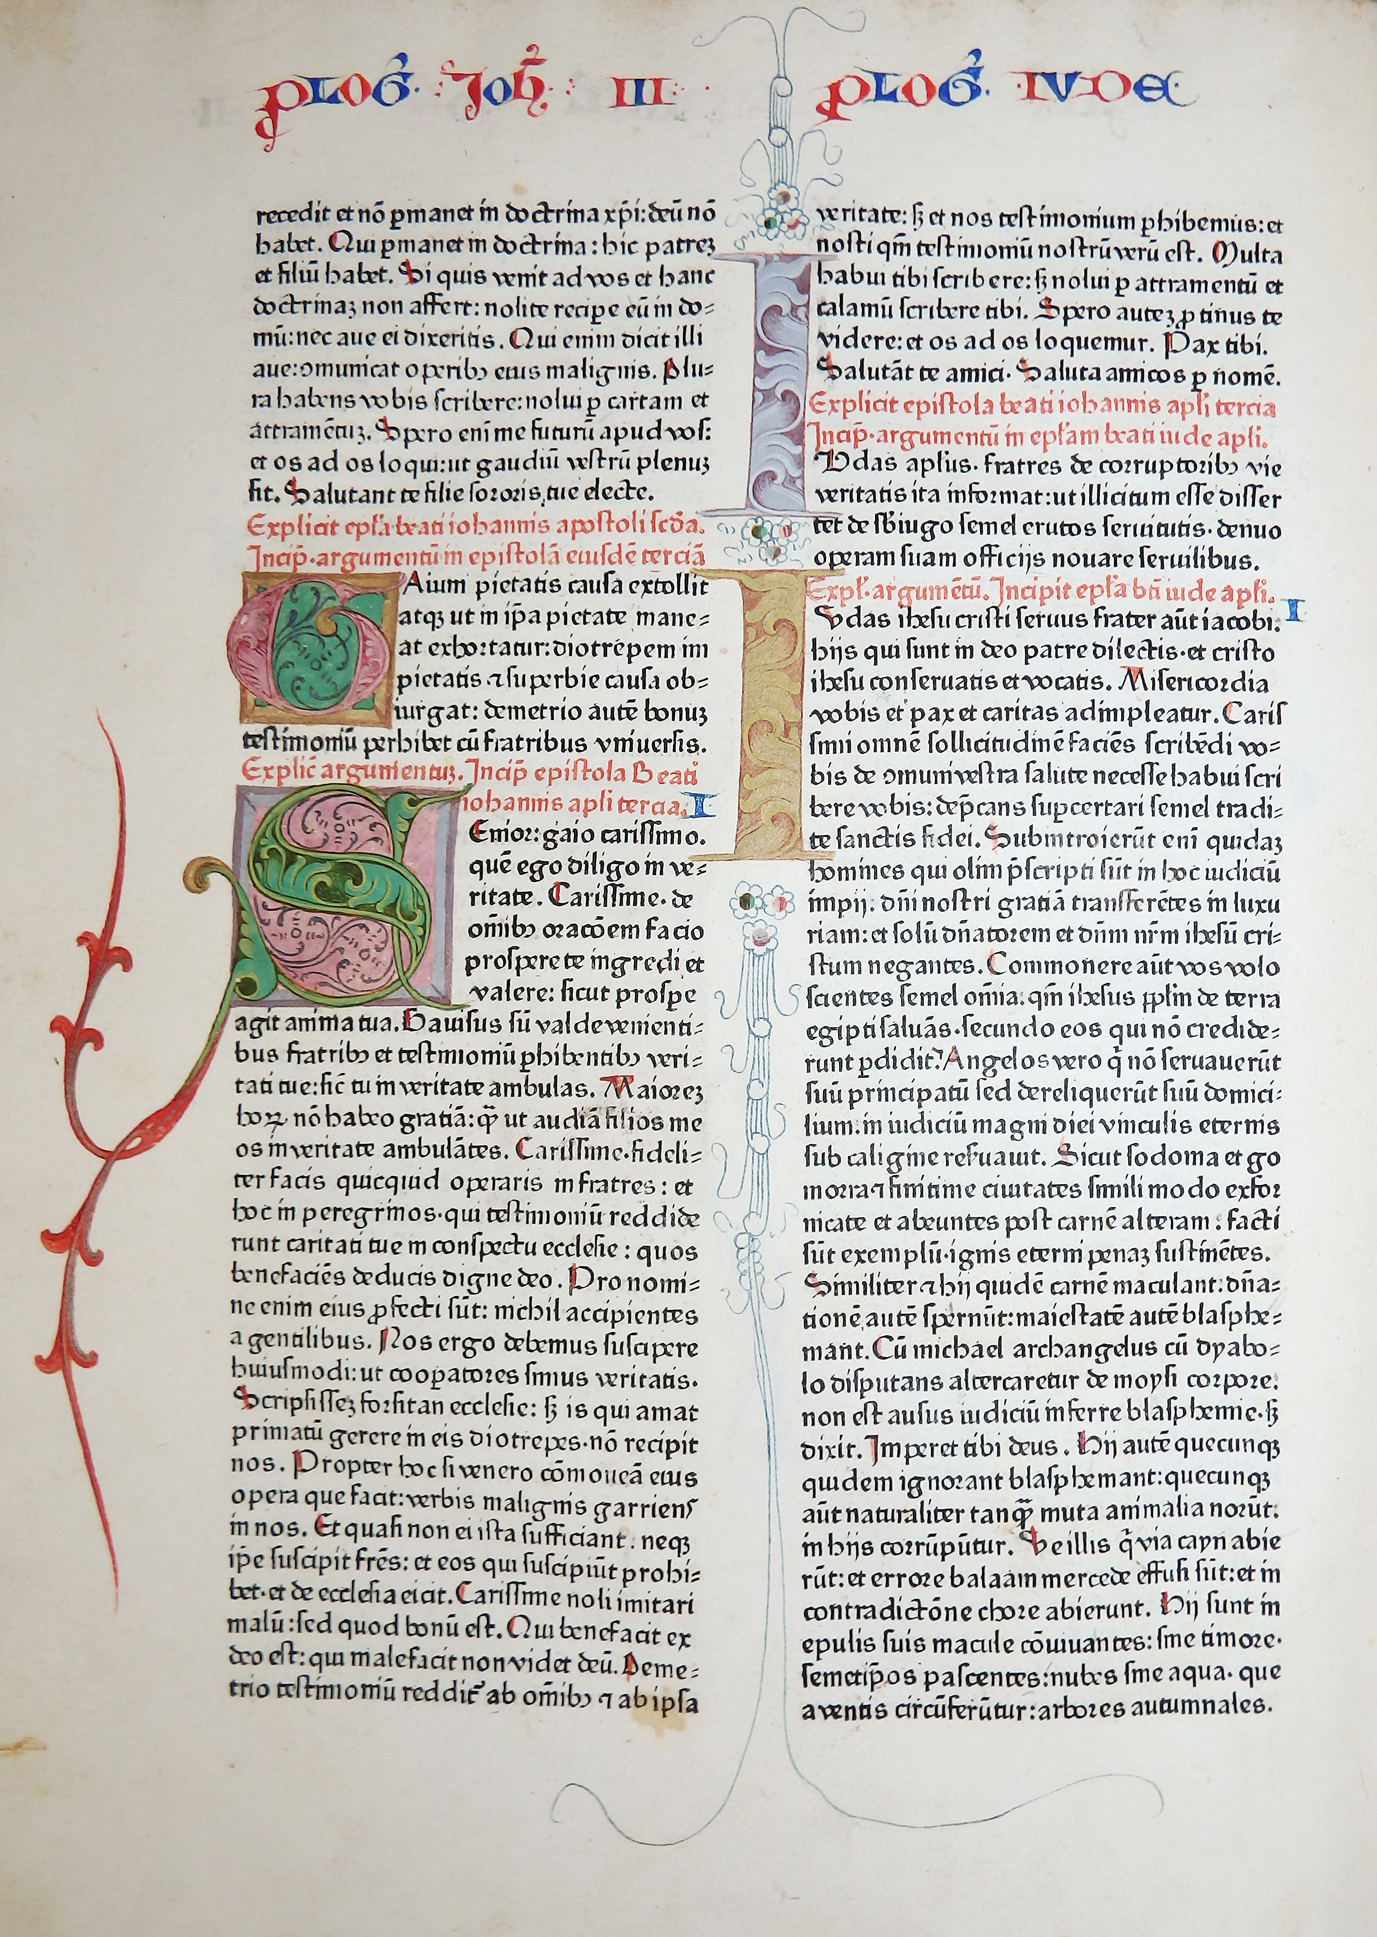 PLOG̅. Joh̅. III
recedit et nō ꝑmanet in doctrina xp̄i: deū nō
habet. Qui ꝑmanet in doctrina: hic patreꝫ
et filiū habet. Si quis venit ad vos et hanc
doctrinaꝫ non affert: nolite recipe eū in do=
mū: nec aue ei dixeritis. Qui enim dicit illi
aue: ꝯmunicat operibꝫ eius malignis. Plu=
ra habens vobis scribere: nolui ꝑ cartam et
attramētuꝫ. Spero eni me futurū apud vos:
et os ad os loqui: ut gaudiū vestrū plenuꝫ
sit. Salutant te filie sororis tue electe.
Explicit epl̄a beati iohannis apostoli scd̄a.
Incip̄. argumentum in epistolā eiusdē terciā
GAium pietatis causa extollit
atqꝫ ut in ip̄a pietate mane=
at exhortatur: diotrepem im
pietatis ⁊ superbie causa ob=
iurgat: demetrio autē bonuꝫ
testimoniū perhibet cū fratribus vniuersis.
Explic̄ argumentuꝫ. Incip̄ epistola Beati
iohannis apl̄i tercia. I
SEnior: gaio carissimo.
quē ego diligo in ve=
ritate. Carissime. de
om̄ibꝫ orac̄oem facio
prospere te ingredi et
valere: sicut prospe
agit anima tua. Gauisus sū valde venienti=
bus fratribꝫ et testimoniū ꝑhibentibꝫ veri=
tati tue: sic̄ tu in veritate ambulas. Maioreꝫ
hoꝝ nō habeo gratiā: qꝫ̄ ut audiā filios me
os in veritate ambulātes. Carissime. fideli=
ter facis quicquid operaris in fratres: et
hoc in peregrinos. qui testimoniū reddide
runt caritati tue in conspectu ecclesie: quos
benefaciēs deducis digne deo. Pro nomi=
ne enim eius ꝓfecti sūt: nichil accipientes
a gentilibus. Nos ergo debemus suscipere
huiusmodi: ut cooꝑatores simus veritatis.
Scripsisseꝫ forsitan ecclesie: sꝫ is qui amat
primatū gerere in eis diotrepes. nō recipit
nos. Propter hoc si venero cōmoueā eius
opera que facit: verbis malignis garriens
in nos. Et quasi non ei ista sufficiant: neqꝫ
ip̄e suscipit fr̄es: et eos qui suscipiūt prohi=
bet. et de ecclesia eicit. Carissime noli imitari
malū: sed quod bonū est. Qui benefacit ex
deo est: qui malefacit non videt deū. Deme=
trio testimoniū reddit̄ ab om̄ibꝫ ⁊ ab ipsa
PLOG̅. IVDE
veritate: sꝫ et nos testimonium ꝑhibemus: et
nosti qm̄ testimoniū nostrū verū est. Multa
habui tibi scribere: sꝫ nolui ꝑ attramentū et
calamū scribere tibi. Spero auteꝫ ꝓtinus te
videre: et os ad os loquemur. Pax tibi.
Salutāt te amici. Saluta amicos ꝑ nomē.
Explicit epistola beati iohannis apl̄i tercia
Incip̄. argumentū in epl̄am beati iude apl̄i.
IVdas apl̄us. fratres de corruptoribꝫ vie
veritatis ita informat: ut illicitum esse disser
tet de sb̄iugo semel erutos seruitutis. denuo
operam suam officijs nouare seruilibus.
Expl̄. argumētū. Incipit epl̄a bt̄i iude apl̄i. I
IVdas ihesu cristi seruus frater aūt iacobi.
hijs qui sunt in deo patre dilectis. et cristo
ihesu conseruatis et vocatis. Misericordia
vobis et pax et caritas adimpleatur. Caris
simi omnē sollicitudinē faciēs scribēdi vo=
bis de ꝯmuni vestra salute necesse habui scri
bere vobis: dep̄cans suꝑcertari semel tradi=
te sanctis fidei. Subintroierūt eni quidaꝫ
homines qui olim p̄scripti sūt in hoc iudiciū
impij: dn̄i nostri gratiā transferētes in luxu
riam: et solū dn̄atorem et dn̄m nr̄m ihesū cri=
stum negantes. Commonere aūt vos volo
scientes semel om̄ia. qm̄ ihesus pp̄l̄m de terra
egipti saluās. secundo eos qui nō credide=
runt ꝑdidit. Angelos vero q̄ nō seruauerūt
suū principatū sed dereliquerūt suū domici=
lium: in iudiciū magni diei vinculis eternis
sub caligine res̄uauit. Sicut sodoma et go
morra ⁊ finitime ciuitates simili modo exfor
nicate et abeuntes post carnē alteram: facti
sūt exemplū. ignis eterni penaꝫ sustinētes.
Similiter ⁊ hij quidē carnē maculant: dn̄a=
tionē autē spernūt: maiestatē autē blasphe=
mant. Cū michael archangelus cū dyabo=
lo disputans altercaretur de moysi corpore:
non est ausus iudiciū inferre blasphemie. sꝫ
dixit. Imperet tibi deus. Hij autē quecunqꝫ
quidem ignorant blasphemant: quecunqꝫ
aūt naturaliter tanqꝫ̄ muta animalia norūt:
in hijs corrūpūtur. Ve illis q̄ via cayn abie
rūt: et errore balaam mercede effusi sūt: et in
contradictōne chore abierunt. Hij sunt in
epulis suis macule cōuiuantes: sine timore.
semetip̄os pascentes: nubes sine aqua. que
a ventis circūferūtur: arbores autumnales.